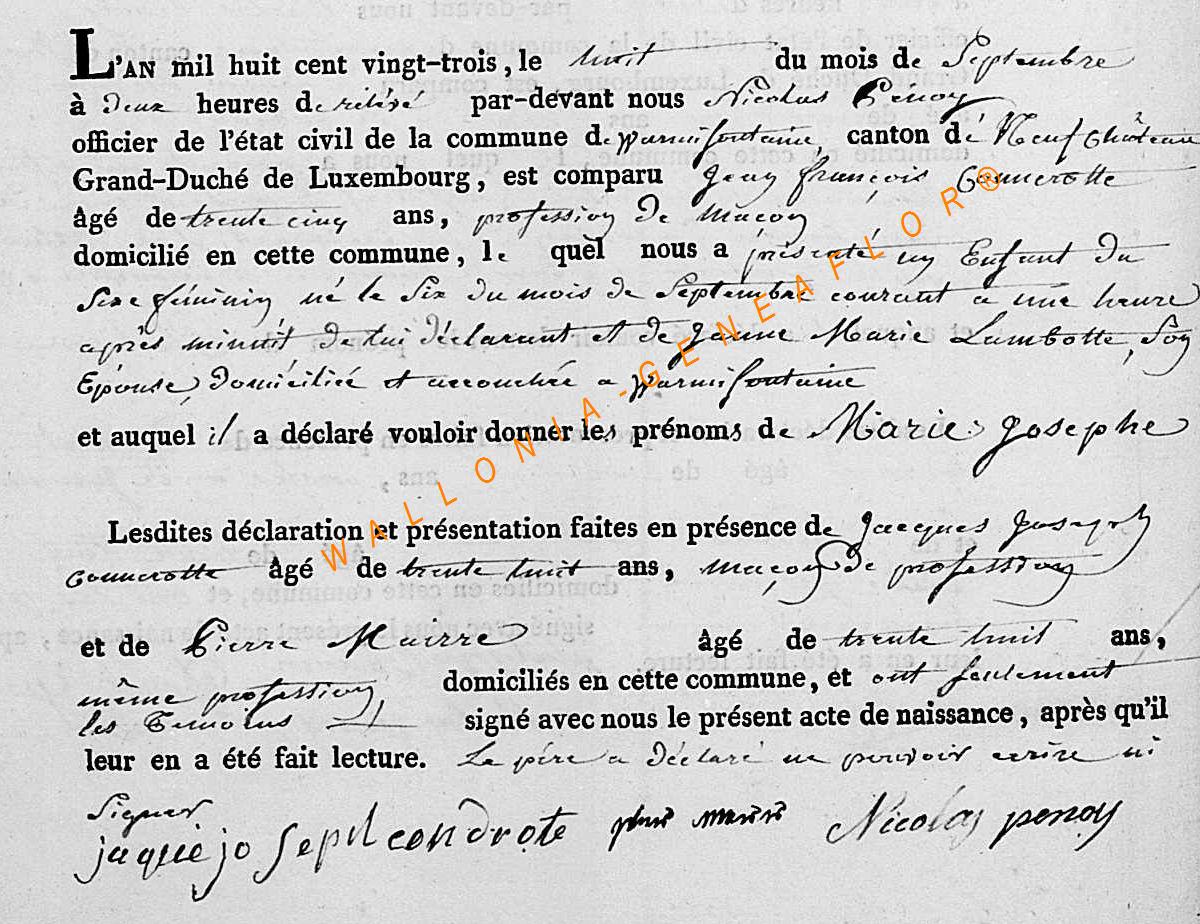 L'AN mil huit cent vingt-trois, le huit du mois de Septembre
à Deux heures de rélévé par-devant nous Nicolas Penoy
officier de l'état civil de la commune de Warmifontaine, canton dé Neufchâteau
Grand-Duché de Luxembourg, est comparu Jean françois Connerotte
âgé de trente cinq ans, profession de Macon
domicilié en cette commune, le quel nous a présenté un Enfant du
Sexe féminin né le Six du mois de Septembre courant a une heure
après minuit de lui déclarant et de Jeanne Marie Lambotte, Son
Epouse, Domiciliée et accouchée a Warmifontaine
et auquel il a déclaré vouloir donner les prénoms de Marie Josephe
Lesdites déclaration et présentation faites en présence de Jacques Joseph
Connerotte âgé de trente huit ans, maçon de profession
et de Pierre Mairre âgé de trente huit ans,
même profession domiciliés en cette commune, et ont seulement
les Temoins signé avec nous le présent acte de naissance, après qu'il
leur en a été fait lecture. Le père a Déclaré ne pouvoir ecrire ni
Signer
jaque joseph condrote Nicolas penoy
WALLONIA-GENEAFLOR®